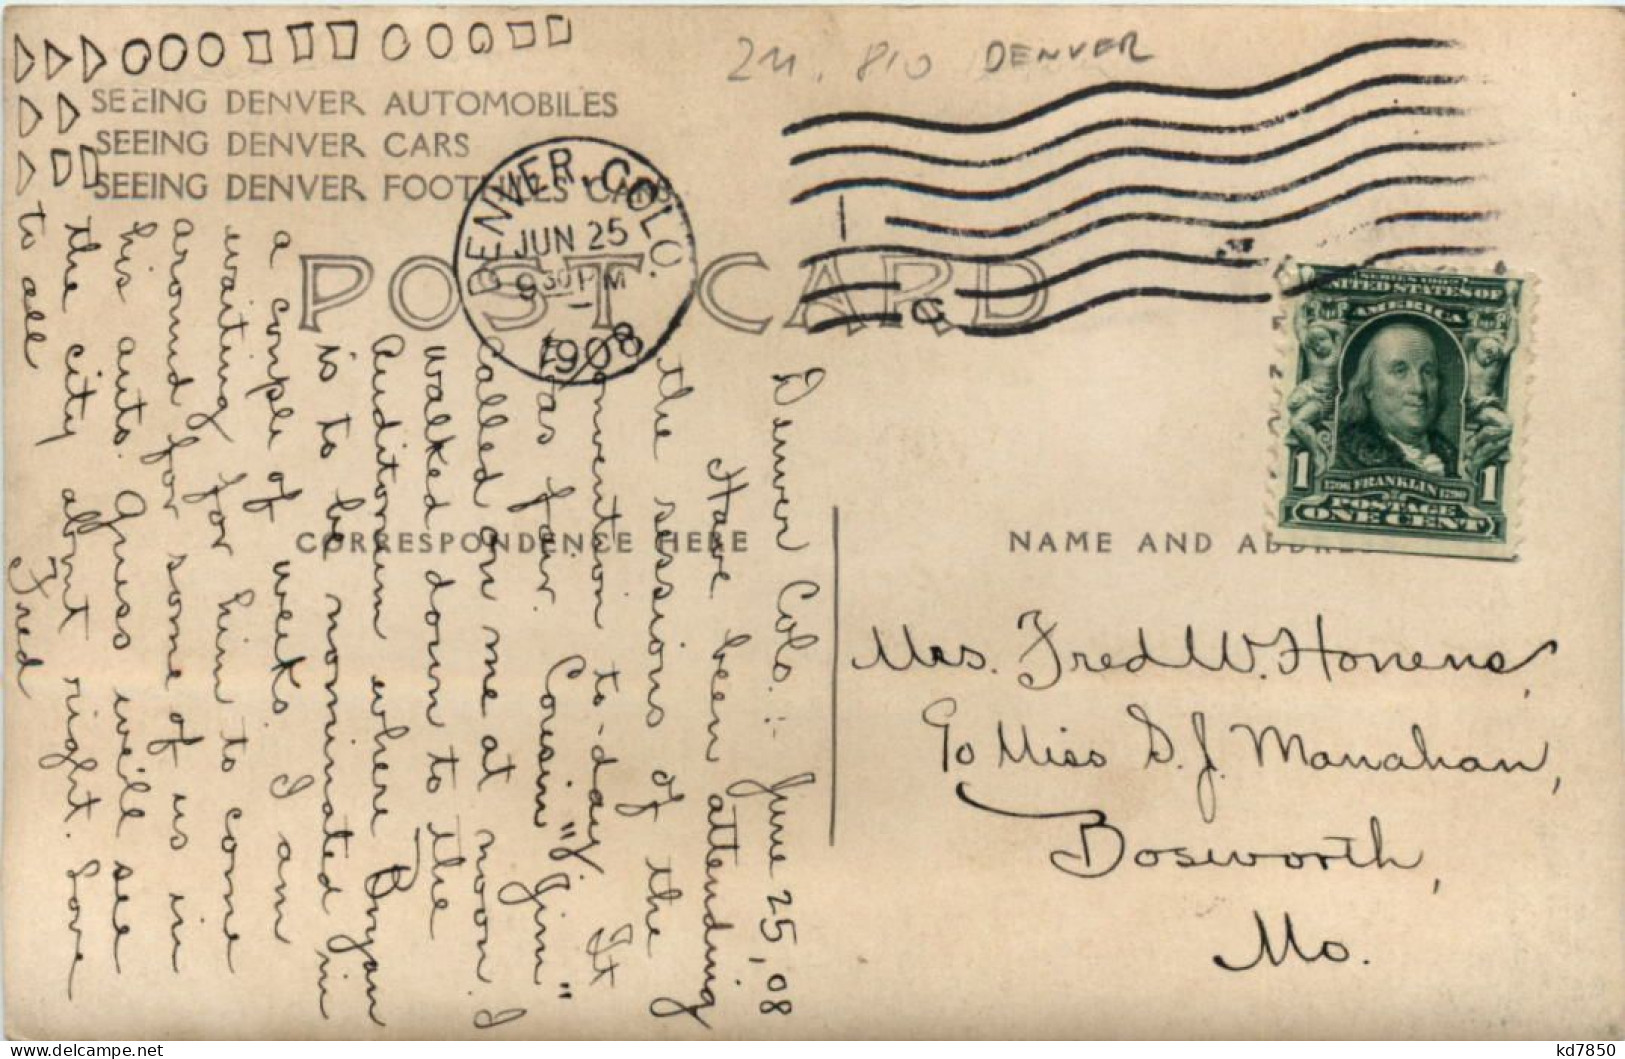 2M. 810 DENVER
SEEING DENVER AUTOMOBILES
SEEING DENVER CARS
SEEING DENVER FOOTHILLS CARS
POST CARD
DENVER, COLO.
JUN 25
9 30 PM
1908
SERIES 1902
UNITED STATES OF
AMERICA
1706 FRANKLIN 1790
1 1
POSTAGE
ONE CENT
CORRESPONDENCE HERE
NAME AND ADDRESS
Denver Colo. :- June 25, 08
Have been attending
the sessions of the
convention to-day. It
was fair. Cousin "Jim"
called on me at noon. I
walked down to the
Auditorium where Bryan
is to be nominated in
a couple of weeks. I am
waiting for him to come
around for some of us in
his auto. Guess we'll see
the city about right. Love
to all Fred
Mrs. Fred W. Honens,
c/o Miss S. J. Manahan,
Bosworth,
Mo.
kd7850